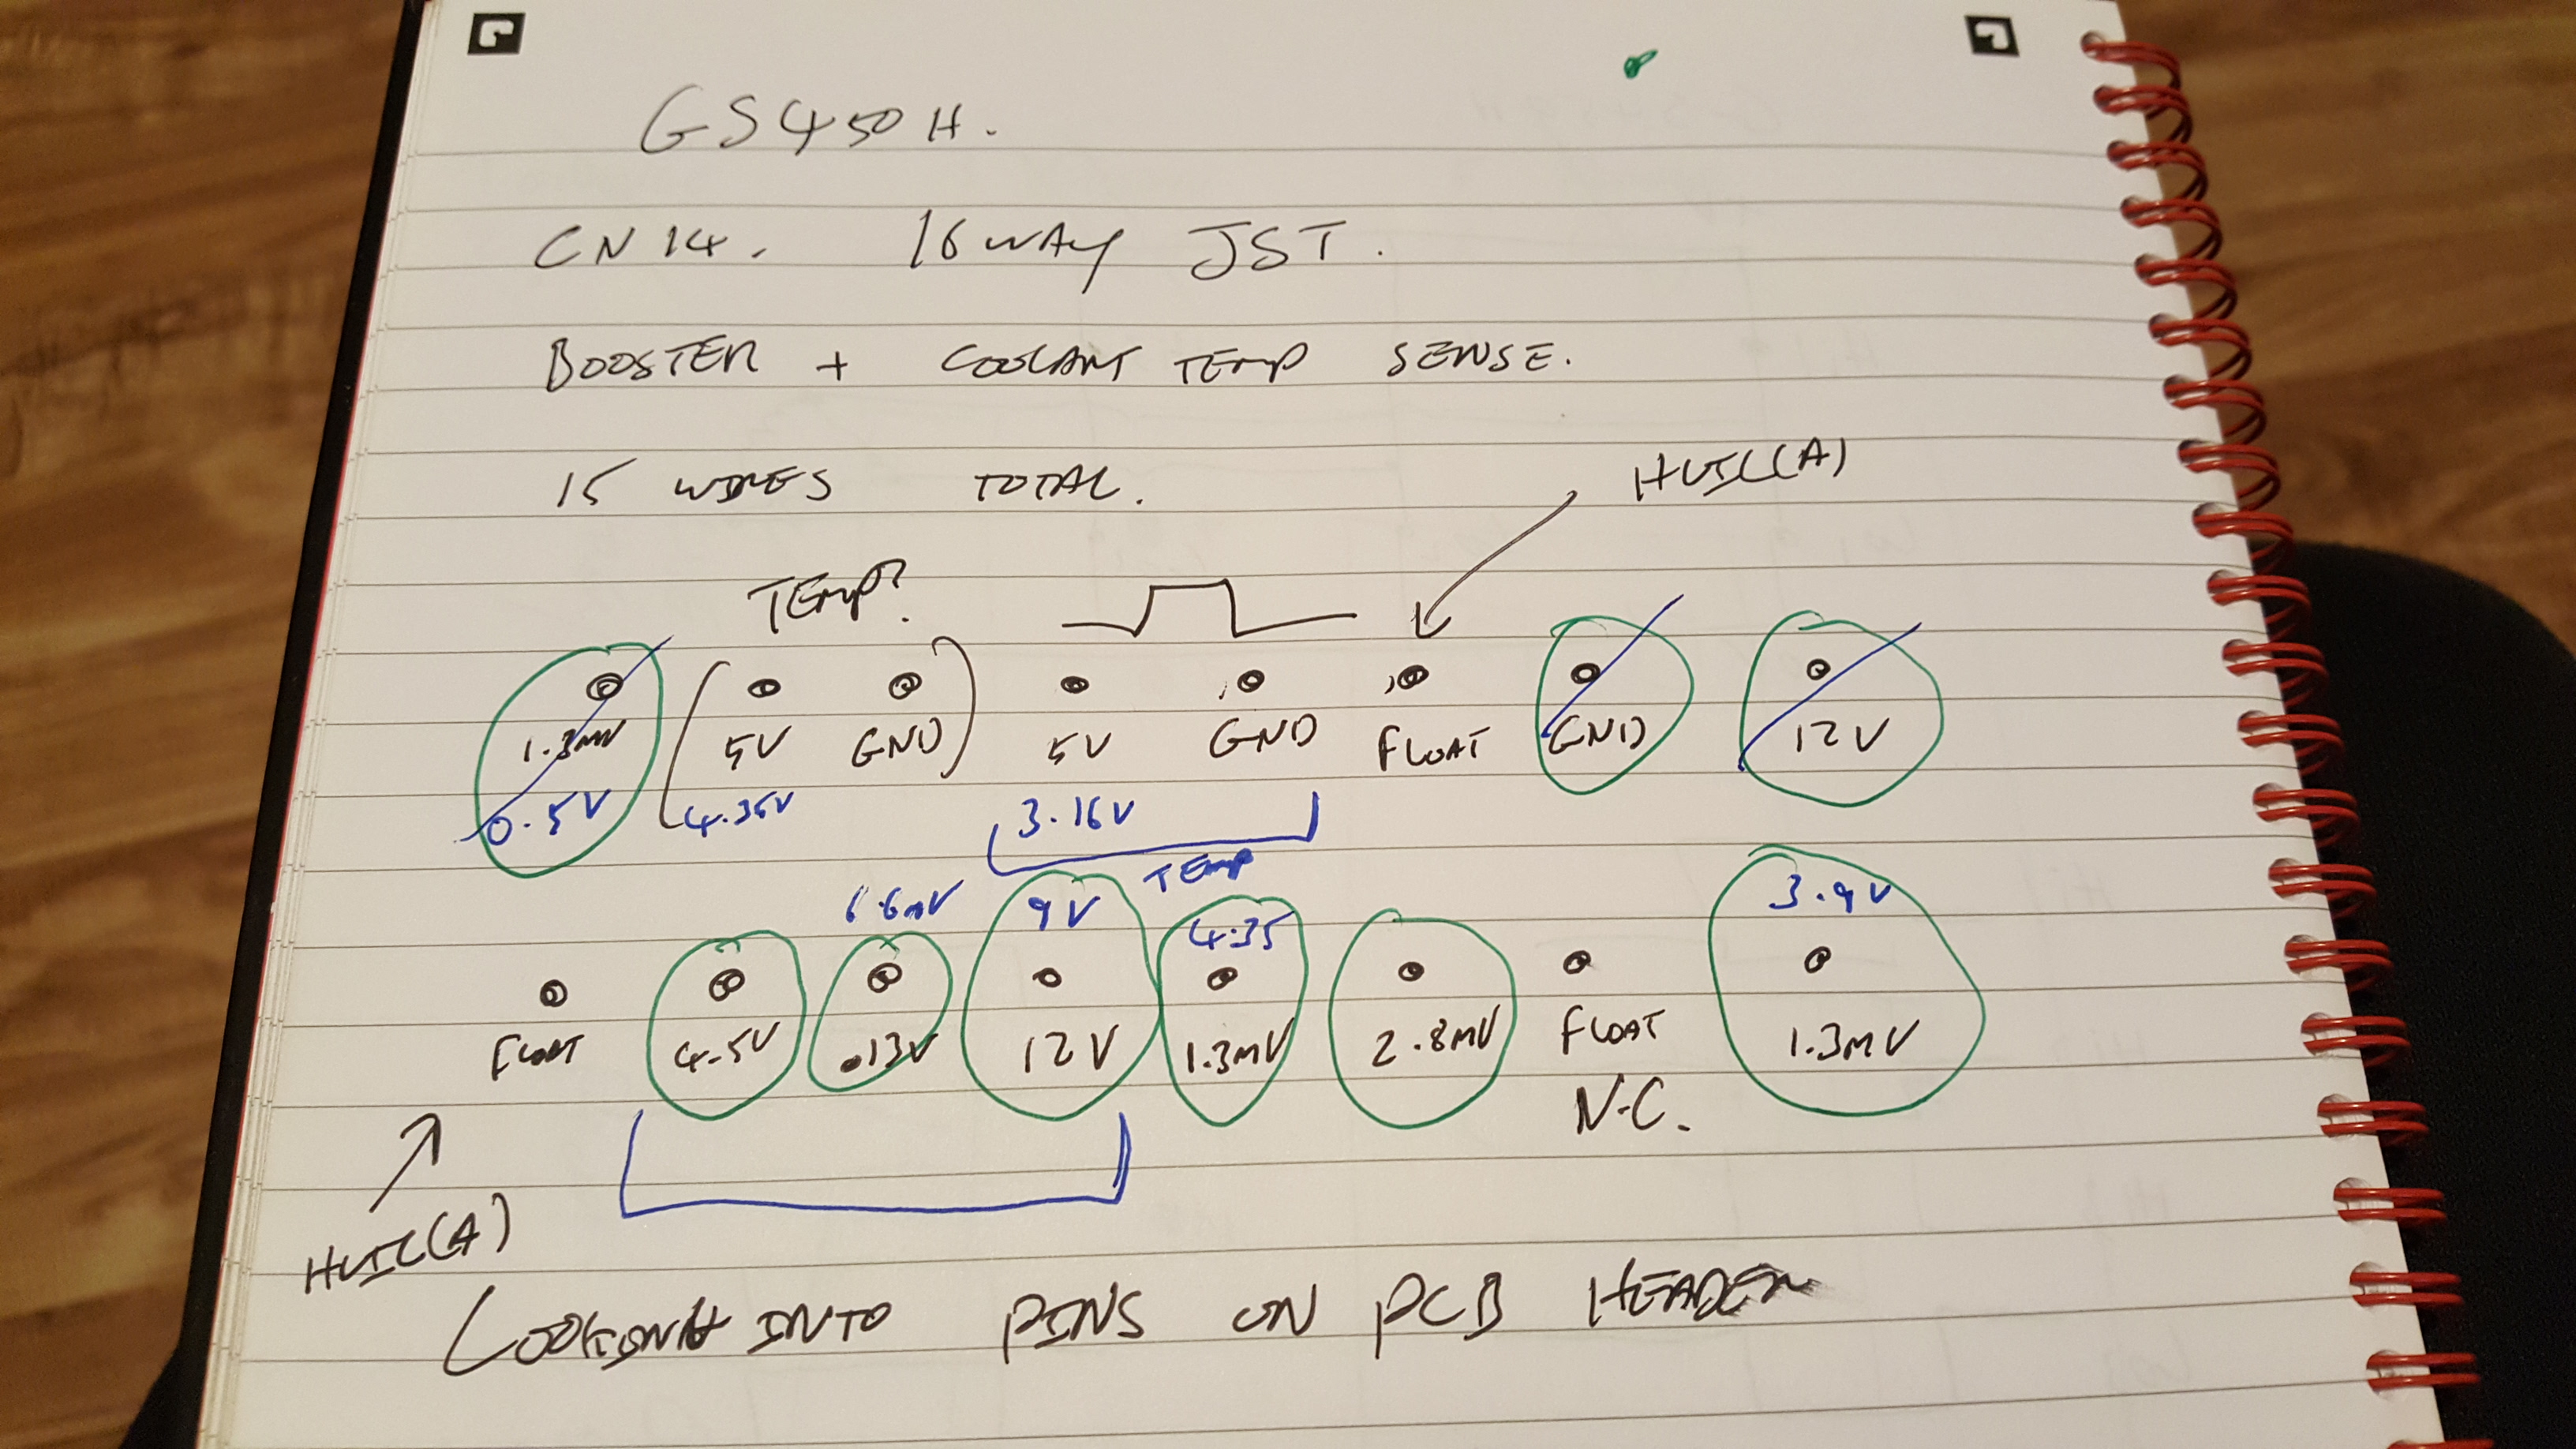 GS450H.
CN14. 16 WAY JST.
BOOSTER + COOLANT TEMP SENSE.
15 WIRES TOTAL.
HVIL(A)
TEMP?
1.3mV 5V GND 5V GND FLOAT GND 12V
0.5V 4.35V 3.16V
TEMP
6.6mV 9V 4.35 3.9V
FLOAT 4.5V .13V 12V 1.3mV 2.8mV FLOAT 1.3mV
N.C.
HVIL(A)
LOOKING INTO PINS ON PCB HEADER